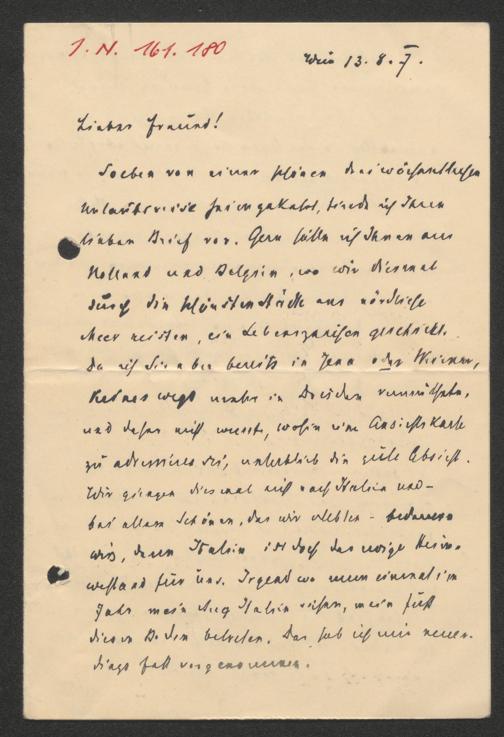 J. N. 161.180
Wien 13. 8.
Lieber Freund!
Soeben von einer schönen dreiwöchentlichen
Urlaubsreise heimgekehrt, finde ich Ihren
lieben Brief vor. Gern hätte ich Ihnen aus
Holland und Belgien, wo wir diesmal
durch die schönsten Städte ans nördliche
Meer reisten, ein Lebenszeichen geschickt.
Da ich Sie aber bereits in Jena oder
keineswegs mehr in Dresden vermuthete,
und daher nicht wusste, wohin eine Ansichtskarte
zu adressieren sei, unterblieb die gute Absicht.
Wir giengen diesmal nicht nach Italien und –
bei allem Schönen, das wir erlebten – bedauern
wir's, denn Italien ist doch das ewige Heim-
wehland für uns. Irgendwo muss einmal im
Jahr mein Aug Italien sehen, mein Fuß
diesen Boden betreten. Das hab ich mir neuer-
dings fest vorgenommen.